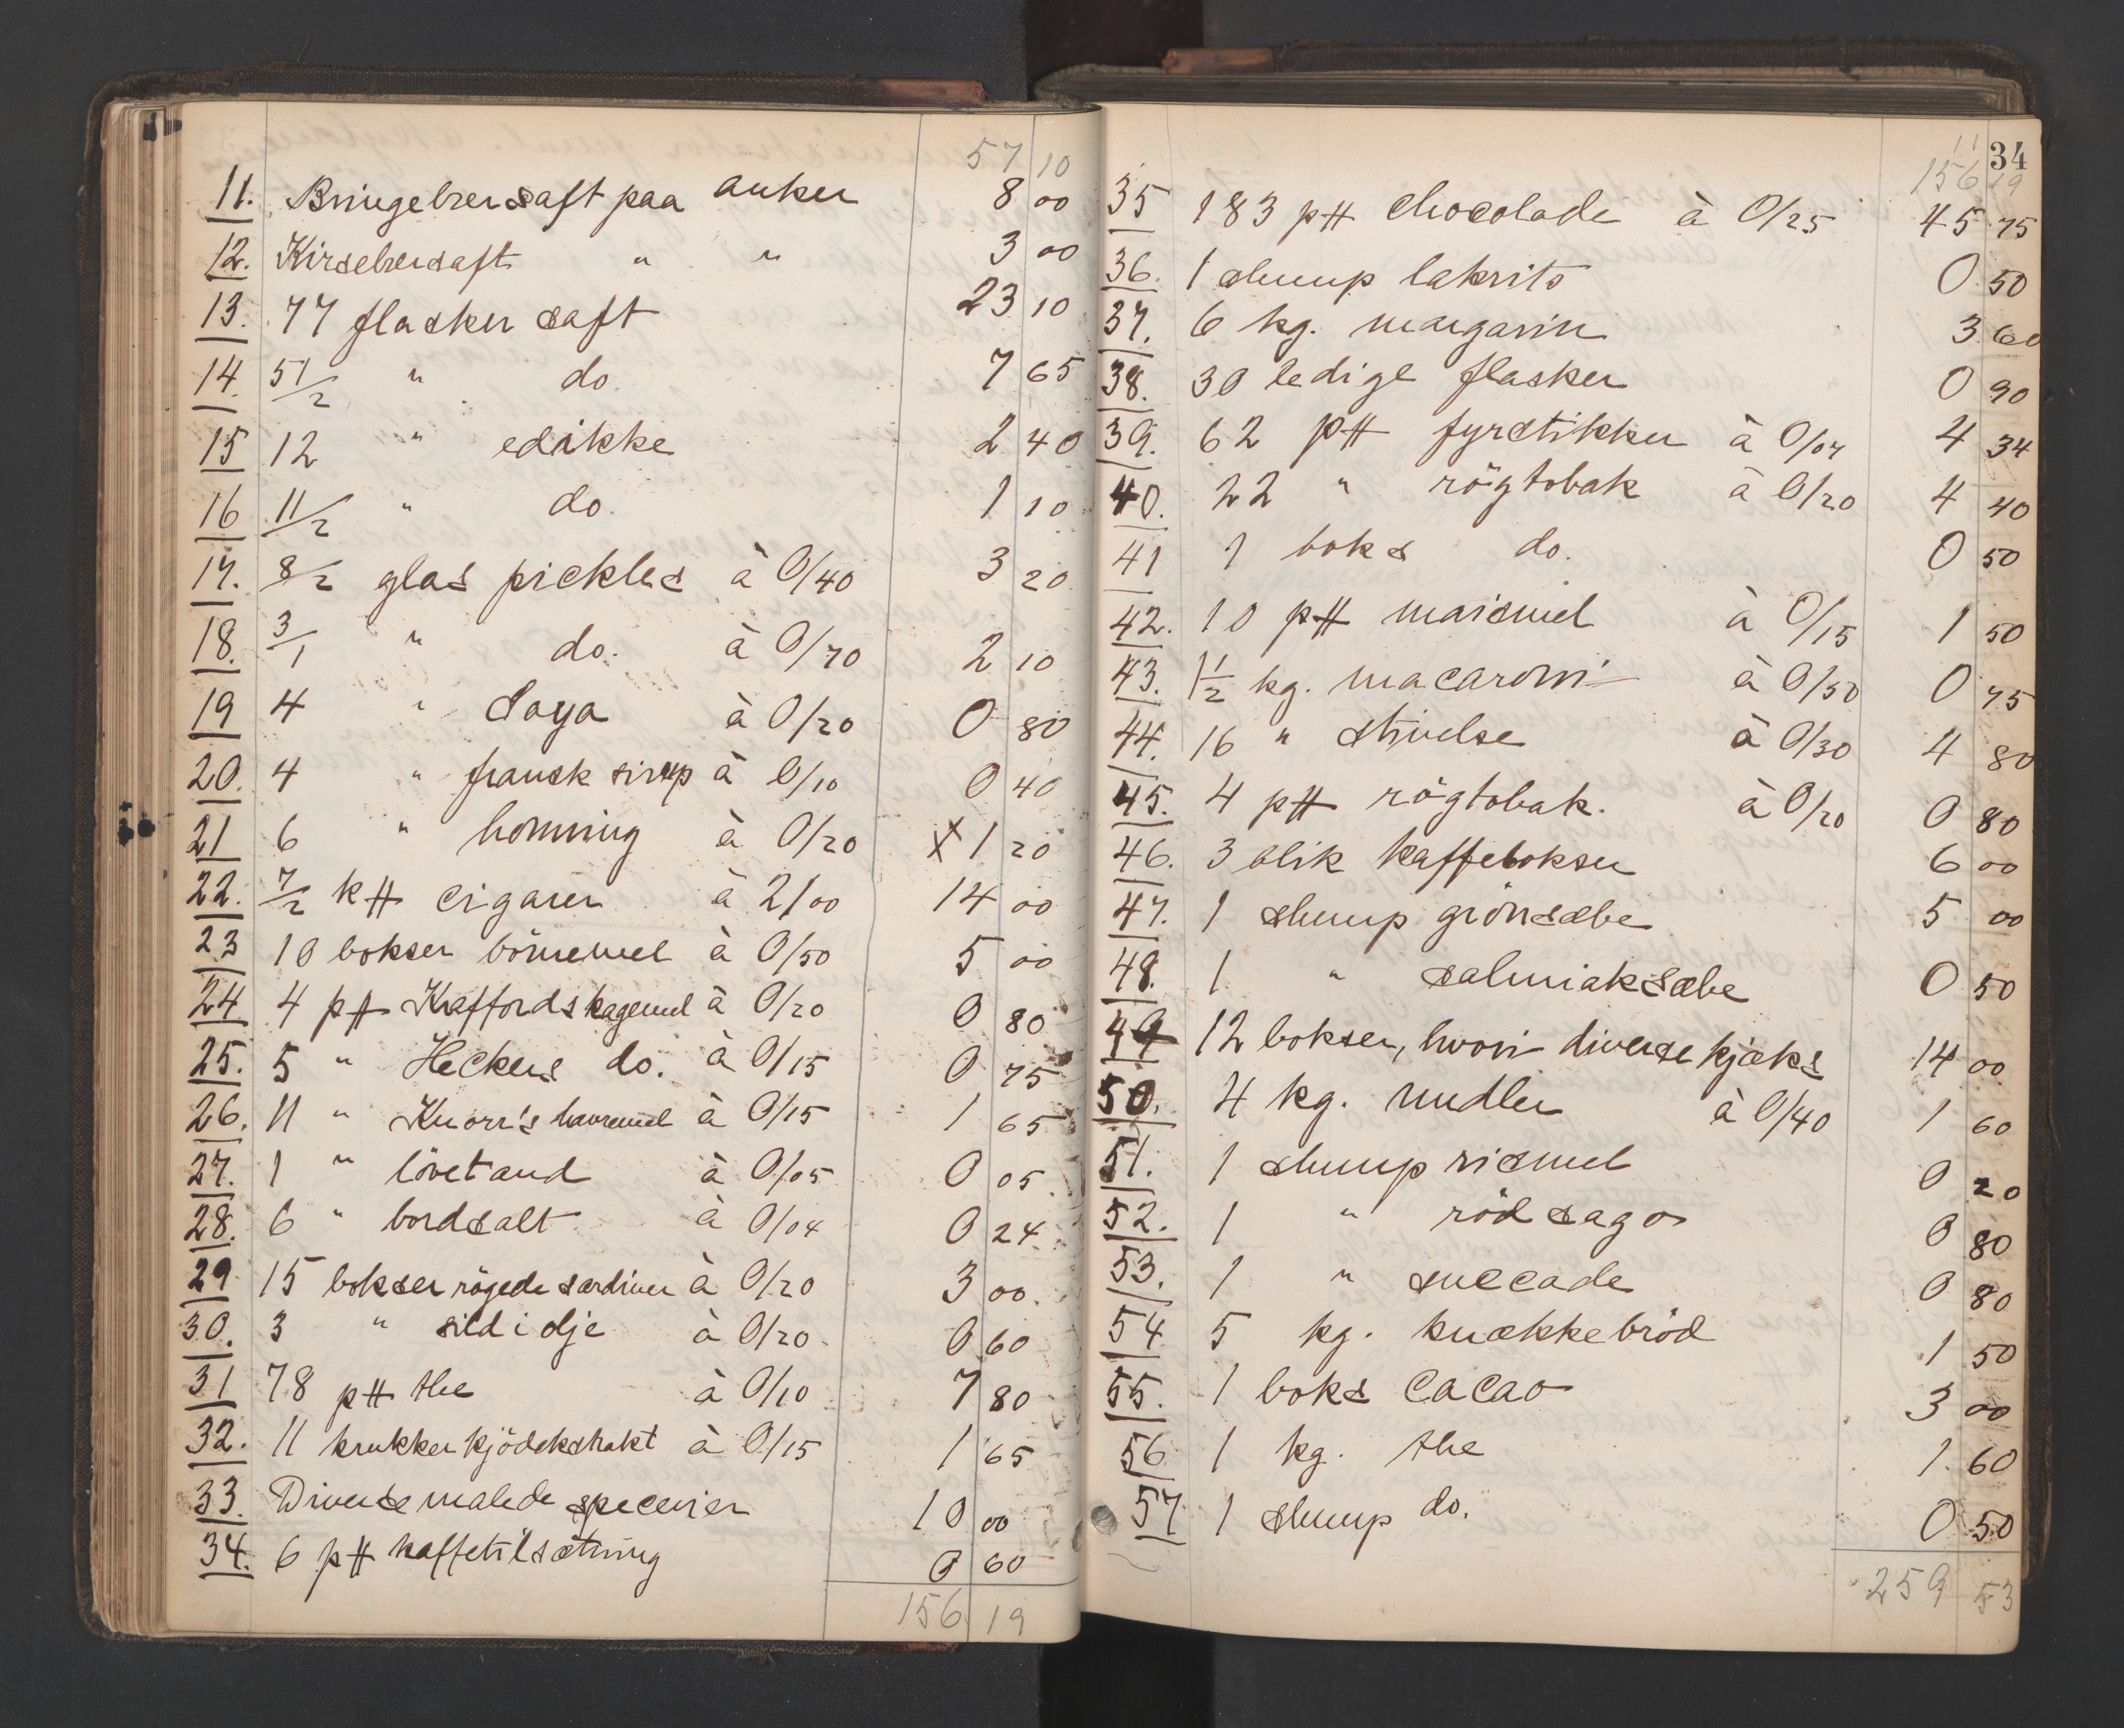 57 10
11. Bringebersaft paa anker 8 00
12. Kirsebersaft " " 3 00
13. 77 flasker saft 23 10
14. 51/2 " do. 7 65
15 12 " edikke 2 40
16 11/2 " do. 1 10
17. 8/2 glas pickles à 0/40 3 20
18. 3/1 " do. à 0/70 2 10
19 4 " Soya à 0/20 0 80
20. 4 " fransk sirup à 0/10 0 40
21 6 " honning à 0/20 X 1 20
22. 7/2 k# cigarer à 2/00 14 00
23 10 bokser börnemel à 0/50 5 00
24. 4 p# Kraffords kagemel à 0/20 0 80
25. 5 " Heckers do. à 0/15 0 75
26. 11 " Knorr's havremel à 0/15 1 65
27. 1 " lövetand à 0/05 0 05
28. 6 " bordsalt à 0/04 0 24
29 15 bokser rögede sardiner à 0/20 3 00
30. 3 " sild i olje à 0/20 0 60
31 78 p# the à 0/10 7 80
32. 11 krukker kjödekstrakt à 0/15 1 65
33. Diverse malede specerier 10 00
34. 6 p# kaffetilsætning 0 60
156 19
34
11
156 19
35 183 p# chocolade à 0/25 45 75
36. 1 slump lakrits 0 50
37. 6 kg. margarin 3 60
38. 30 ledige flasker 0 90
39. 62 p# fyrstikker à 0/07 4 34
40. 22 " rögtobak à 0/20 4 40
41 1 boks do. 0 50
42. 10 p# maismel à 0/15 1 50
43. 1 1/2 kg. macaroni à 0/50 0 75
44. 16 " stivelse à 0/30 4 80
45. 4 p# rögtobak. à 0/20 0 80
46. 3 blik kaffebokser 6 00
47. 1 slump grönsæbe 5 00
48. 1 " salmiaksæbe 0 50
49 12 bokser, hvori diverse kjæks 14 00
50. 4 kg. nudler à 0/40 1 60
51. 1 slump rismel 0 20
52. 1 " röd sago 0 80
53. 1 " succade 0 80
54 5 kg. knækkebröd 1 50
55. 1 boks cacao 3 00
56 1 kg. the 1. 60
57 1 slump do. 0 50
259 53